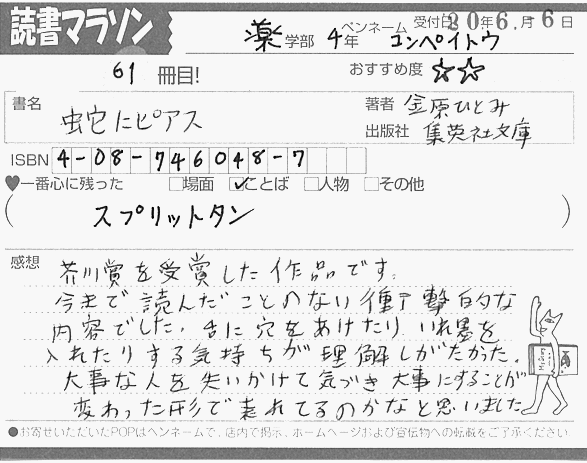 読書マラソン
薬学部 4年 ペンネーム コンペイトウ 受付日 20年6月6日
61冊目! おすすめ度 ☆☆
書名 蛇にピアス 著者 金原ひとみ
出版社 集英社文庫
ISBN 4-08-746048-7
♥一番心に残った □場面 ☑ことば □人物 □その他
(スプリットタン)
感想 芥川賞を受賞した作品です。
今まで読んだことのない衝撃的な
内容でした。舌に穴をあけたり、いれ墨を
入れたりする気持ちが理解しがたかった。
大事な人を失いかけて気づき大事にすることが
変わった形で表れてるのかなと思いました
●お寄せいただいたPOPはペンネームで、店内で掲示、ホームページおよび宣伝物への転載をご了承ください